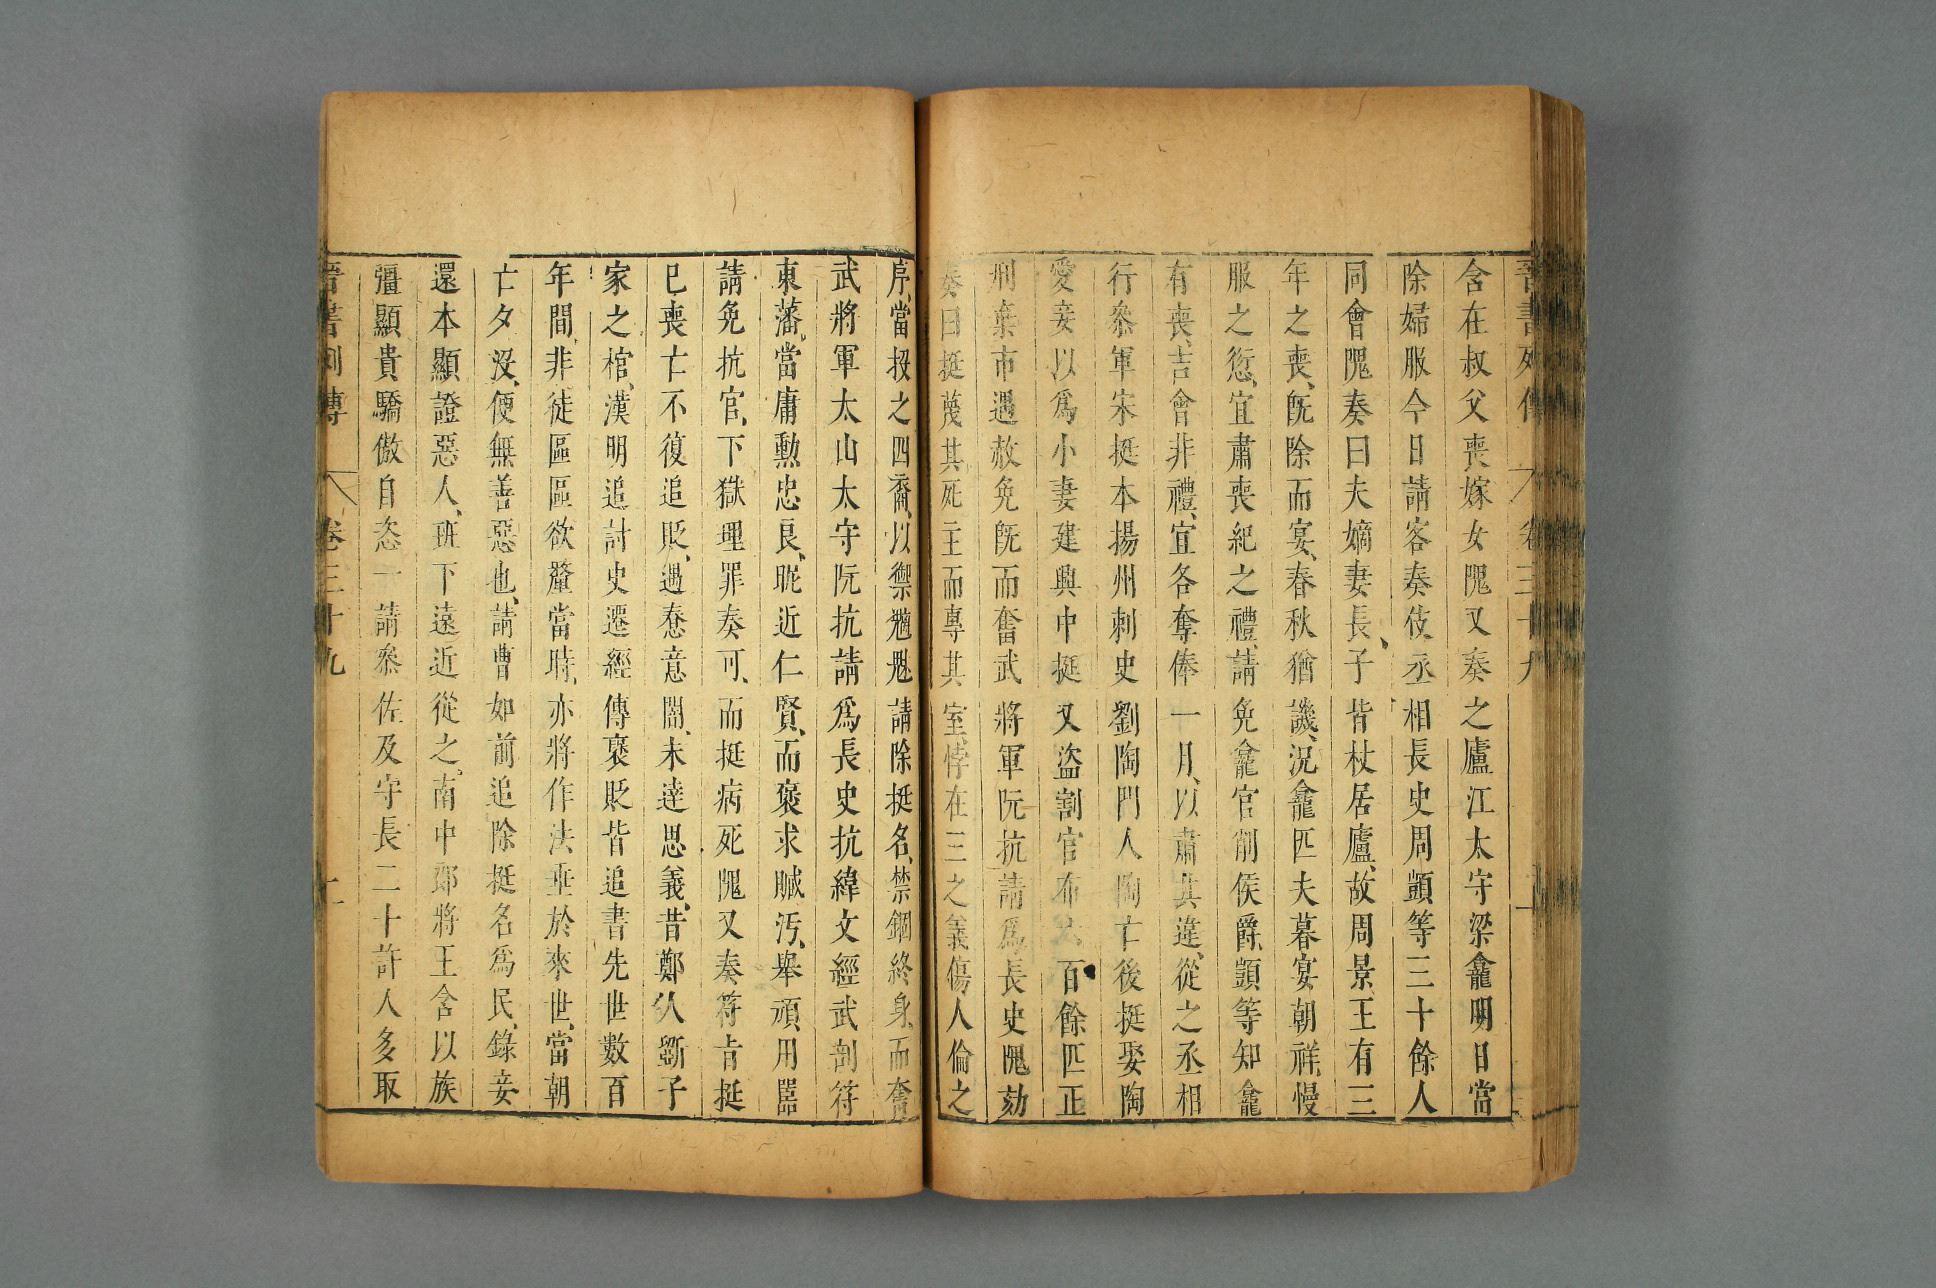 晉書列傳 卷三十九 十
含在叔父喪嫁女隗又奏之廬江太守梁龕明日當
除婦服今日請客奏伎丞相長史周顗等三十餘人
同會隗奏曰夫嫡妻長子皆杖居廬故周景王有三
年之喪既除而宴春秋猶譏況龕匹夫暮宴朝祥慢
服之愆宜肅喪紀之禮請免龕官削侯爵顗等知龕
有喪吉會非禮宜各奪俸一月以肅其違從之丞相
行參軍宋挺本揚州刺史劉陶門人陶亡後挺娶陶
愛妾以爲小妻建興中挺又盜割官布六百餘匹正
刑棄市遇赦免既而奮武將軍阮抗請爲長史隗劾
奏曰挺蔑其死主而專其室悖在三之義傷人倫之
序當投之四裔以禦魑魅請除挺名禁錮終身而奮
武將軍太山太守阮抗請爲長史抗緯文經武剖符
東藩當庸勳忠良昵近仁賢而褒求贓汚舉頑用嚚
請免抗官下獄理罪奏可而挺病死隗又奏符旨挺
已喪亡不復追貶愚惷意闇未達思義昔鄭人斲子
家之棺漢明追討史遷經傳褒貶皆追書先世數百
年間非徒區區欲釐當時亦將作法垂於來世當朝
亡夕沒便無善惡也請曹如前追除挺名爲民錄妾
還本顯證惡人班下遠近從之南中郎將王含以族
彊顯貴驕傲自恣一請參佐及守長二十許人多取
晉書列傳 卷三十九 十一